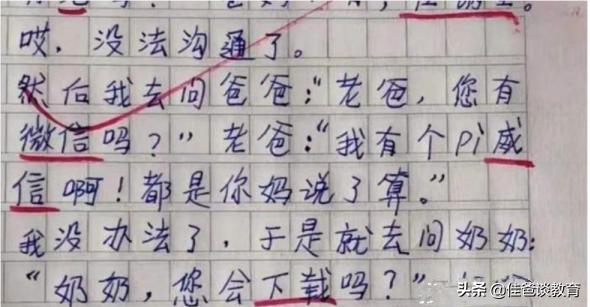 哎，没法沟通了。
然后我去问爸爸："老爸，您有
微信吗？"老爸："我有个pì威
信啊！都是你妈说了算。"
我没办法了，于是就去问奶奶：
"奶奶，您会下载吗？"
头条 @佳爸谈教育